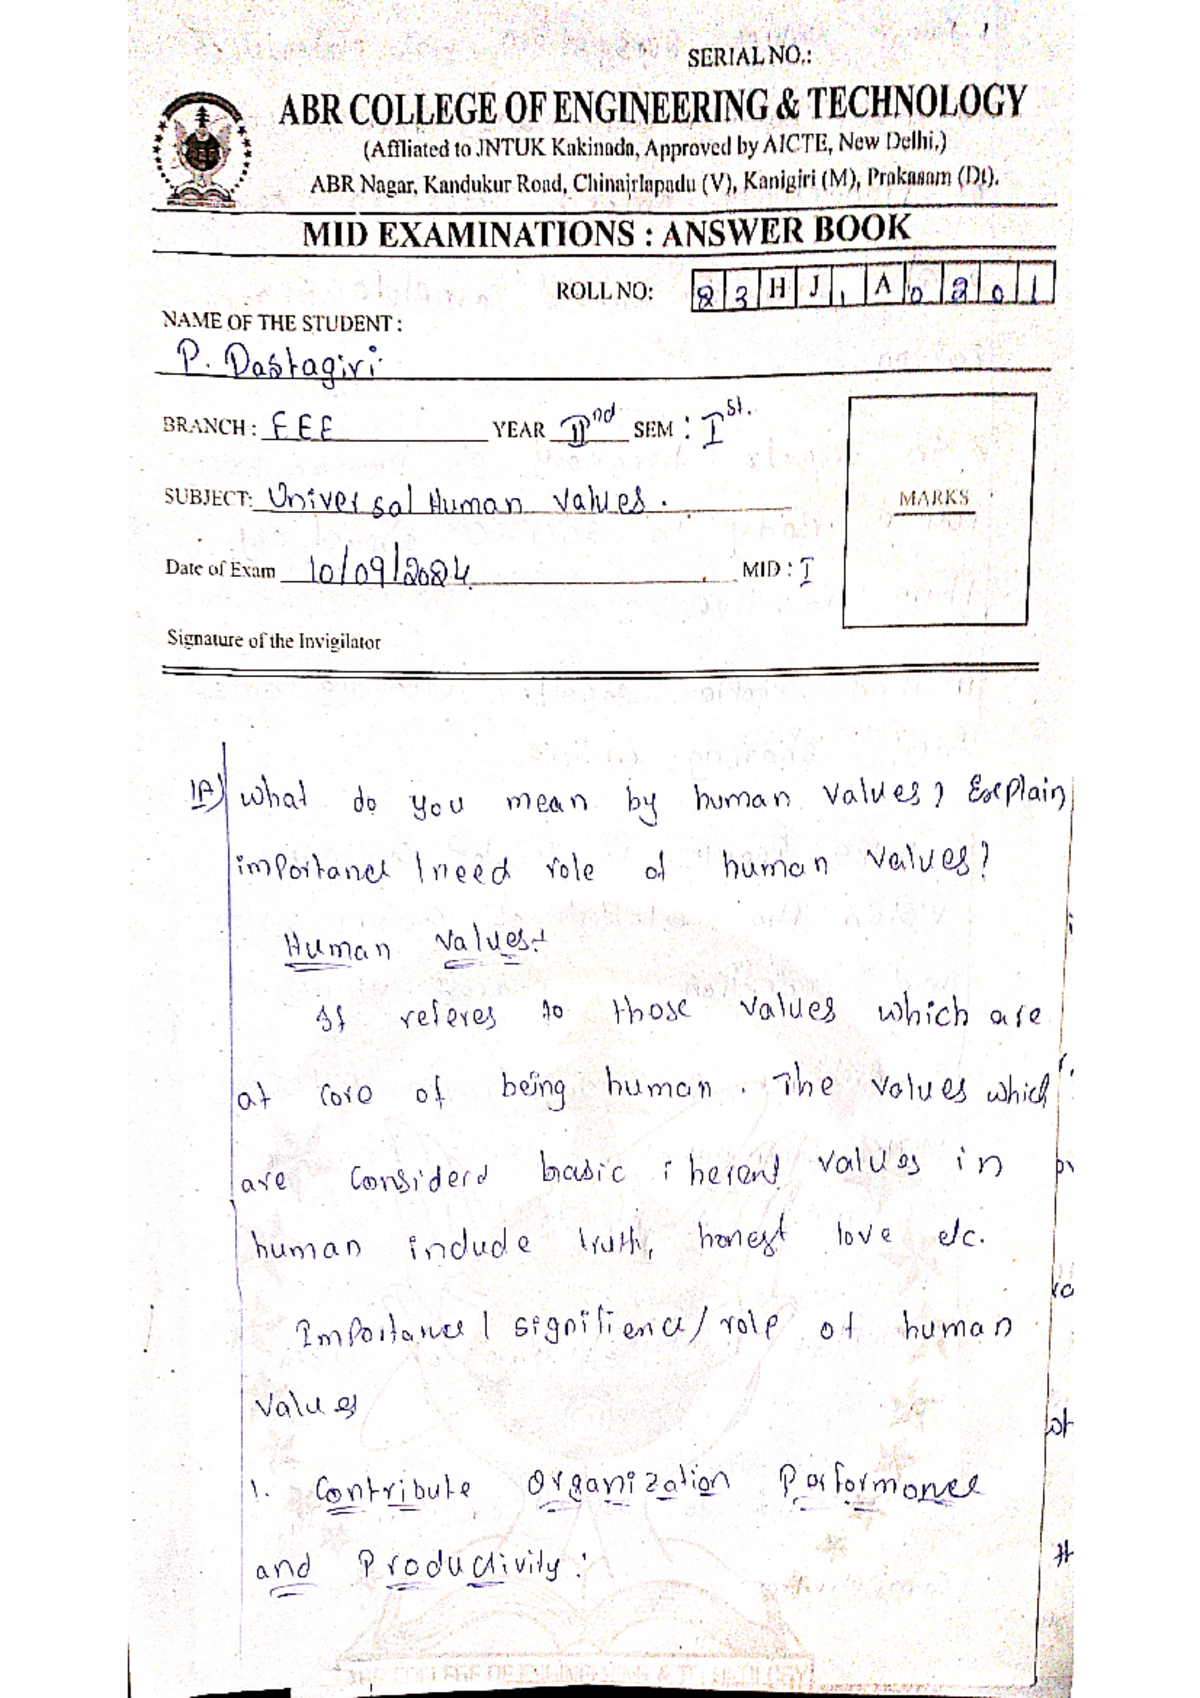 SERIAL NO.:
ABR COLLEGE OF ENGINEERING & TECHNOLOGY
(Affliated to JNTUK Kakinada, Approved by AICTE, New Delhi.)
ABR Nagar, Kandukur Road, Chinairlapadu (V), Kanigiri (M), Prakasam (Dt).
MID EXAMINATIONS : ANSWER BOOK
ROLL NO: 23HJ1A0201
NAME OF THE STUDENT :
P. Dastagiri
BRANCH : EEE YEAR IInd SEM : Ist.
SUBJECT: Universal Human Values.
MARKS
Date of Exam 10/09/2024 MID : I
Signature of the Invigilator
1A) What do you mean by human values? Explain
importance / need role of human values?
Human values:-
It referes to those values which are
at core of being human. The values which
are Considerd basic iherent values in
human include truth, honest love etc.
Importance / significence / role of human
Values
1. Contribute Organization Performance
and Productivity: